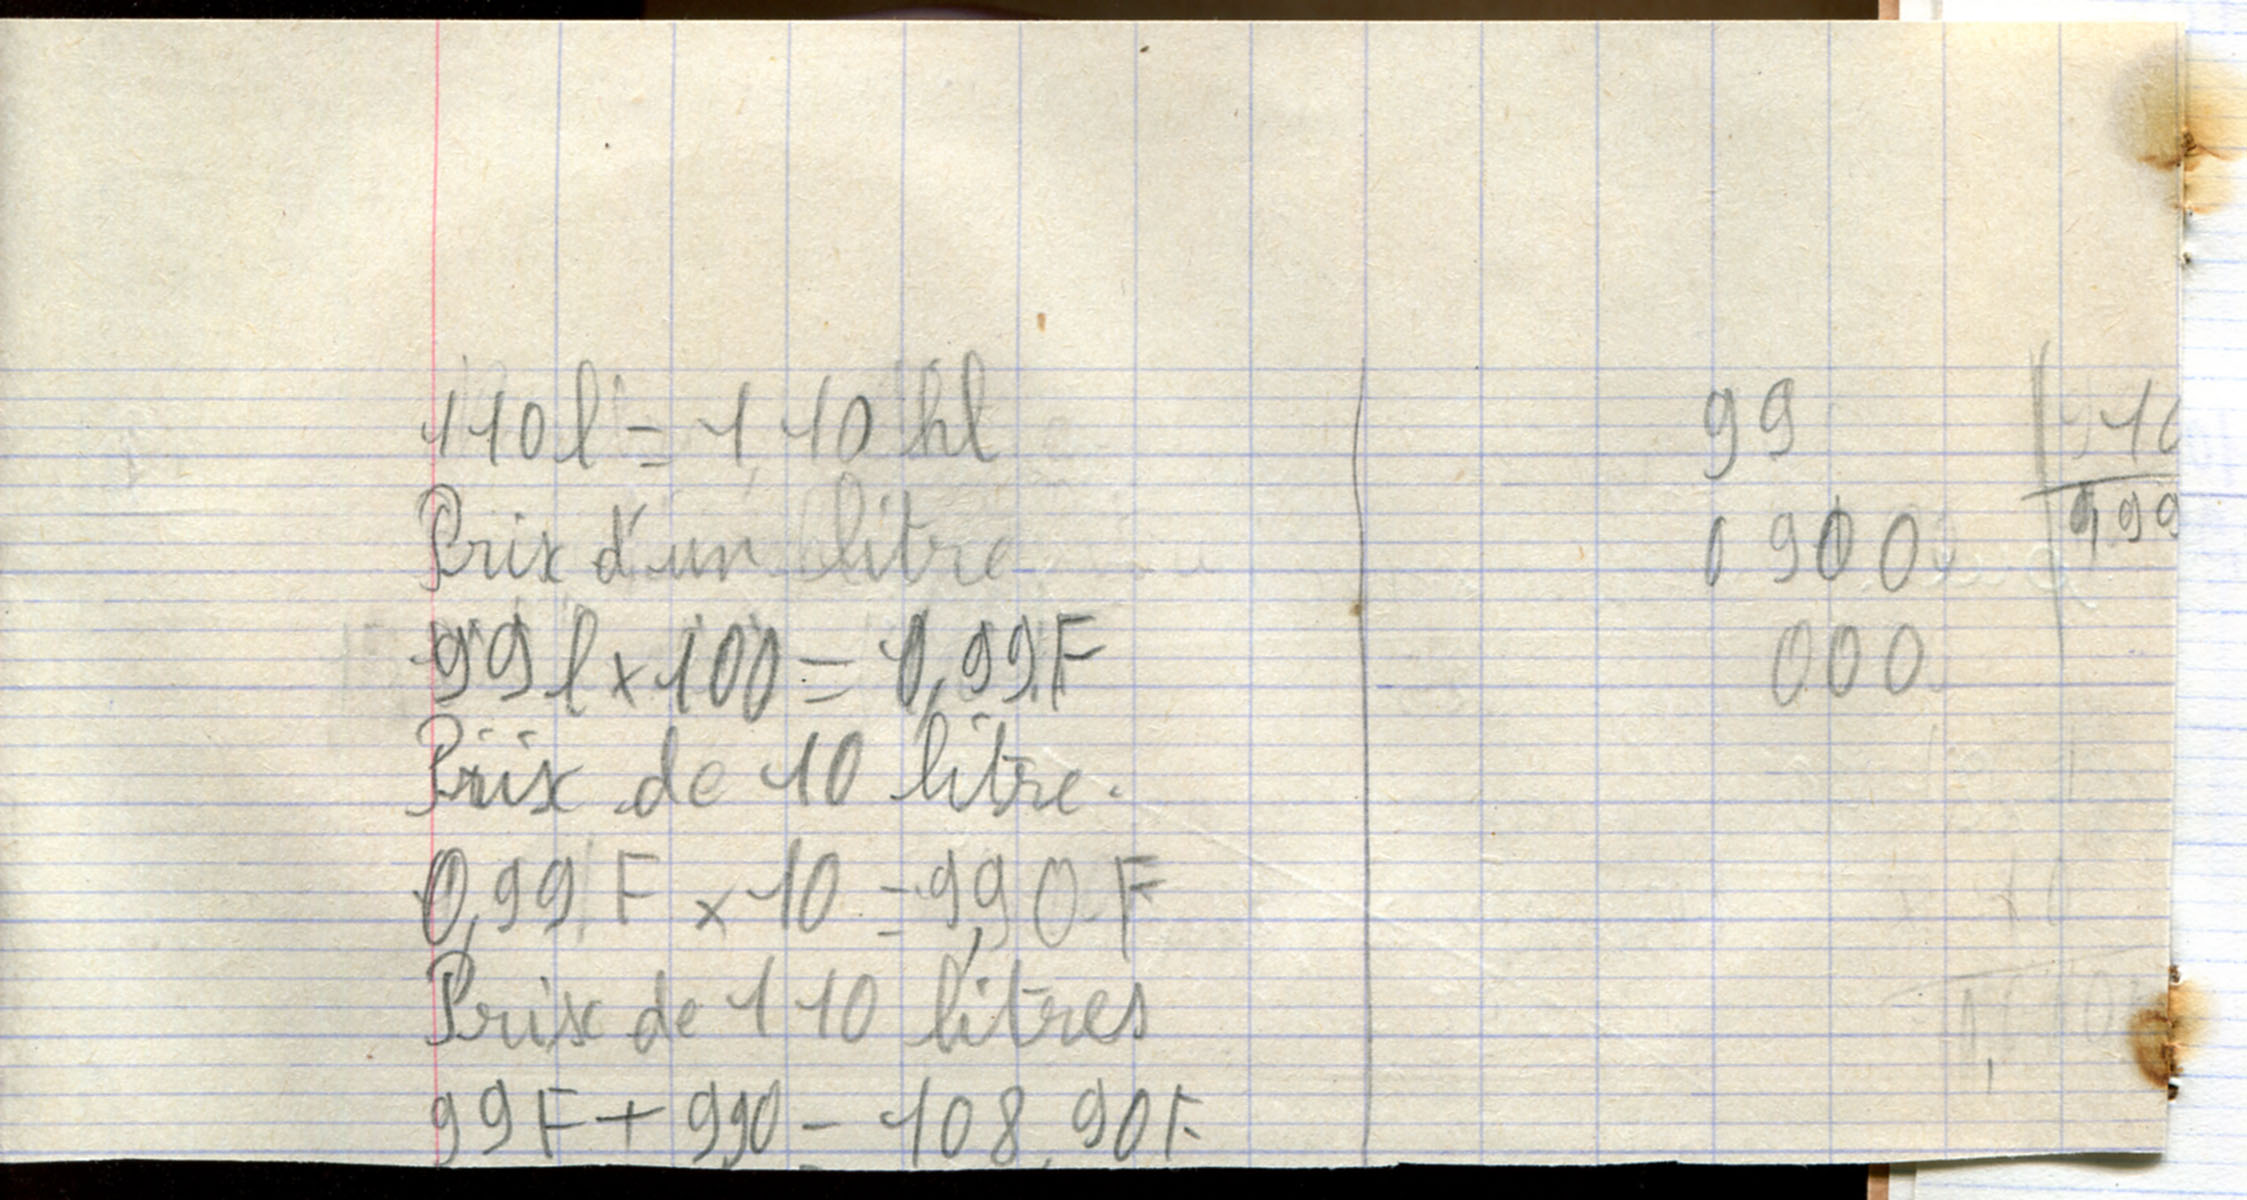 110 l = 1,10 hl
Prix d'un litre
99 l x 100 = 0,99 F
Prix de 10 litre.
0,99 F x 10 = 9,90 F
Prix de 110 litres
99 F + 9,90 = 108,90 F
99
0 900
000